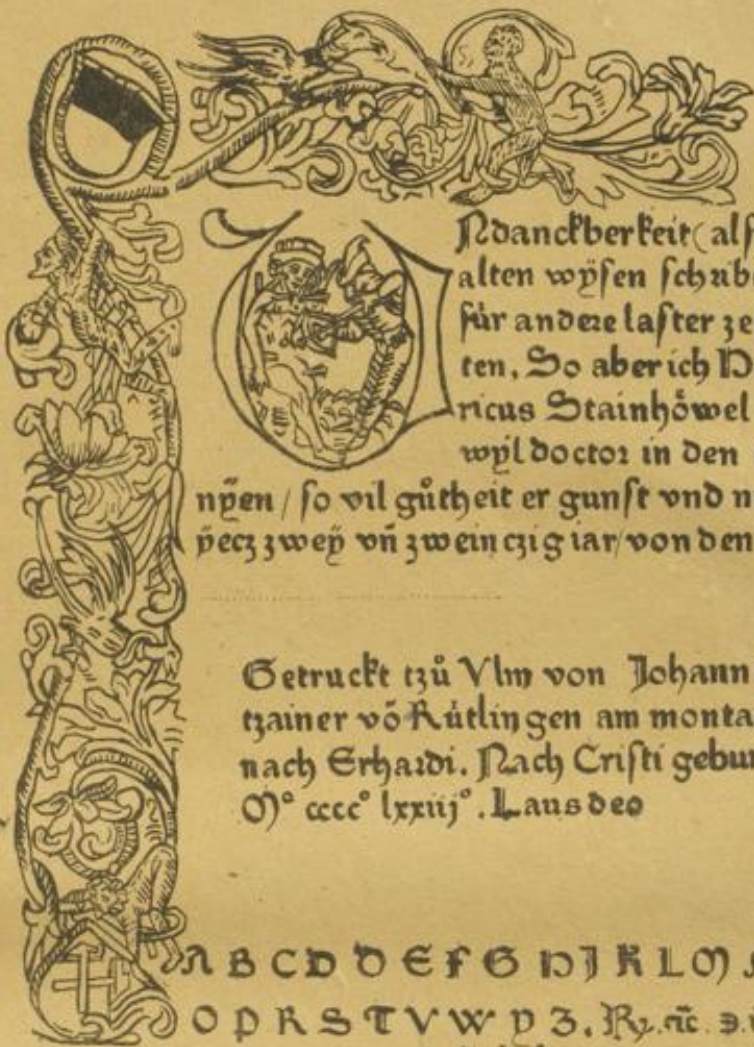 Ndanckberkeit (als
alten wÿsen schrib
für andere laster ze
ten. So aber ich H
ricus Stainhöwel
wÿl doctor in den
nÿen / so vil gůtheit er gunst vnd n
ÿecz zweÿ vn̄ zweinczig iar / von den
Getruckt tzů Vlm von Johann
tzainer vō Rùtlingen am monta
nach Erhardi. Nach Cristi gebur
M° cccc° lxxiij°. Laus deo
A B C D D E F G H J K L M
O P R S T V W Y Z.